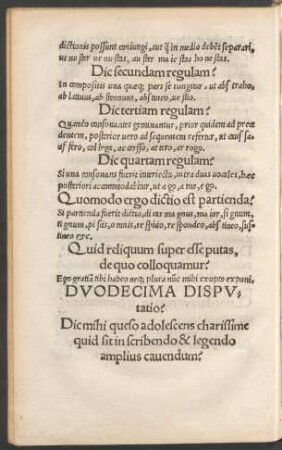 dictionis possunt coniungi, aut q̃ in medio debẽt separari,
ut no ster ue nu stas, au ster ma ie stas ho ne stas.
Dic secundam regulam?
In compositis una quæq; pars se iungitur, ut abs traho,
ab latuus, abs tineo, ue stio.
Dic tertiam regulam?
Quando consonantes geminantur, prior quidem ad præce
dentem, posterior uero ad sequentem refertur, ut
fero, col lega, ac cerso, at tiro, er rogo.
Dic quartam regulam?
Si una consonans fuerit interiecta, intra duas uocales, hæc
posteriori accommodabitur, ut a go, a mo, e go.
Quomodo ergo dictio est partienda?
Si partienda fuerit dictio, di cas ma gnus, ma ior, si gnum,
ti gnum, pi sas, o mnis, re spicio, re spondeo, abs tineo, sus
tineo &c.
Quid reliquum super esse putas,
de quo colloquamur?
Ego gratiã tibi habeo neq; plura nũc mihi exopto exponi.
DVODECIMA DISPV,
tatio?
Dic mihi queso adolescens charissime
quid sit in scribendo & legendo
amplius cauendum?